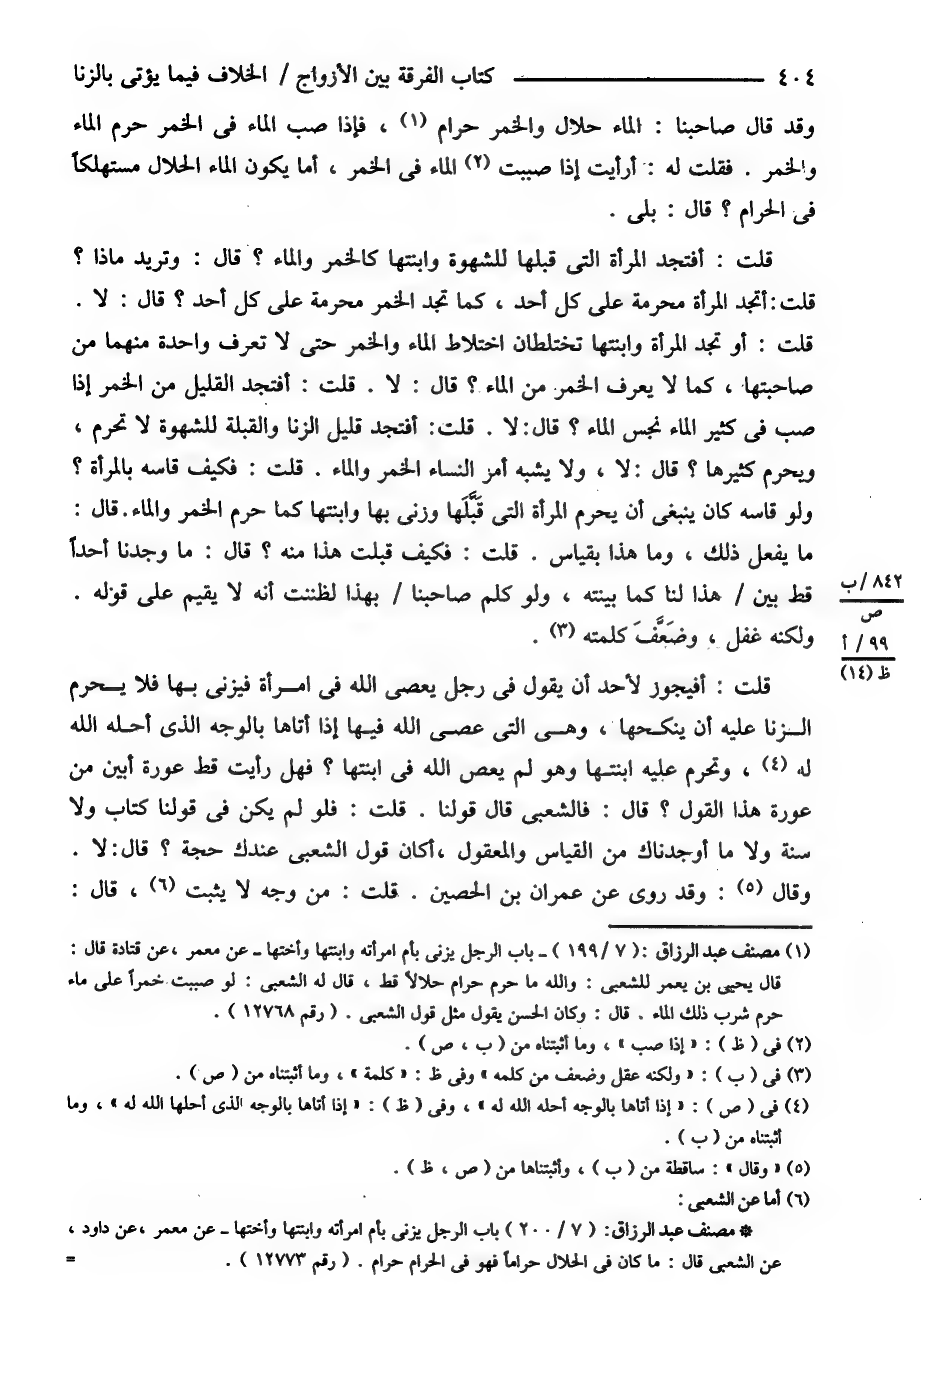 ٤٠٤ ـــــــــ كتاب الفرقة بين الأزواج / الخلاف فيما يؤتى بالزنا
وقد قال صاحبنا : الماء حلال والخمر حرام (١) ، فإذا صب الماء فى الخمر حرم الماء
والخمر . فقلت له : أرأيت إذا صببت (٢) الماء فى الخمر ، أما يكون الماء الحلال مستهلكاً
فى الحرام ؟ قال : بلى .
قلت : أفتجد المرأة التى قبلها للشهوة وابنتها كالخمر والماء ؟ قال : وتريد ماذا ؟
قلت : أتجد المرأة محرمة على كل أحد ، كما تجد الخمر محرمة على كل أحد ؟ قال : لا .
قلت : أو تجد المرأة وابنتها تختلطان اختلاط الماء والخمر حتى لا تعرف واحدة منهما من
صاحبتها ، كما لا يعرف الخمر من الماء ؟ قال : لا . قلت : أفتجد القليل من الخمر إذا
صب فى كثير الماء نجس الماء ؟ قال : لا . قلت : أفتجد قليل الزنا والقبلة للشهوة لا تحرم ،
ويحرم كثيرها ؟ قال : لا ، ولا يشبه أمر النساء الخمر والماء . قلت : فكيف قاسه بالمرأة ؟
ولو قاسه كان ينبغى أن يحرم المرأة التى قَبَّلَها وزنى بها وابنتها كما حرم الخمر والماء . قال :
ما يفعل ذلك ، وما هذا بقياس . قلت : فكيف قبلت هذا منه ؟ قال : ما وجدنا أحداً
قط بين / هذا لنا كما بينته ، ولو كلم صاحبنا / بهذا لظننت أنه لا يقيم على قوله .
٨٤٢ / ب
ص
ولكنه غفل ، وضَعَّفَ كلمته (٣) .
٩٩ / أ
ظ (١٤)
قلت : أفيجوز لأحد أن يقول فى رجل يعصى الله فى امـرأة فيزنى بـها فلا يـحرم
الـزنا عليه أن ينكـحها ، وهـى التى عصـى الله فيـها إذا أتاها بالوجه الذى أحـله الله
له (٤) ، وتحرم عليه ابنتـها وهو لم يعص الله فى ابنتها ؟ فهل رأيت قط عورة أبين من
عورة هذا القول ؟ قال : فالشعبى قال قولنا . قلت : فلو لم يكن فى قولنا كتاب ولا
سنة ولا ما أوجدناك من القياس والمعقول ، أكان قول الشعبى عندك حجة ؟ قال : لا .
وقال (٥) : وقد روى عن عمران بن الحصين . قلت : من وجه لا يثبت (٦) ، قال :
(١) مصنف عبد الرزاق : ( ٧ / ١٩٩ ) ـ باب الرجل يزنى بأم امرأته وابنتها وأختها ـ عن معمر ، عن قتادة قال :
قال يحيى بن يعمر للشعبى : والله ما حرم حرام حلالاً قط ، قال له الشعبى : لو صببت خمراً على ماء
حرم شرب ذلك الماء . قال : وكان الحسن يقول مثل قول الشعبى . ( رقم ١٢٧٦٨ ) .
(٢) فى ( ظ ) : « إذا صب » ، وما أثبتناه من ( ب ، ص ) .
(٣) فى ( ب ) : « ولكنه عقل وضعف من كلمه » وفى ظ : « كلمة » ، وما أثبتناه من ( ص ) .
(٤) فى ( ص ) : « إذا أتاها بالوجه أحله الله له » ، وفى ( ظ ) : « إذا أتاها بالوجه الذى أحلها الله له » ، وما
أثبتناه من ( ب ) .
(٥) « وقال » : ساقطة من ( ب ) ، وأثبتناها من ( ص ، ظ ) .
(٦) أما عن الشعبى :
* مصنف عبد الرزاق : ( ٧ / ٢٠٠ ) باب الرجل يزنى بأم امرأته وابنتها وأختها ـ عن معمر ، عن داود ،
عن الشعبى قال : ما كان فى الحلال حراماً فهو فى الحرام حرام . ( رقم ١٢٧٧٣ ) . =